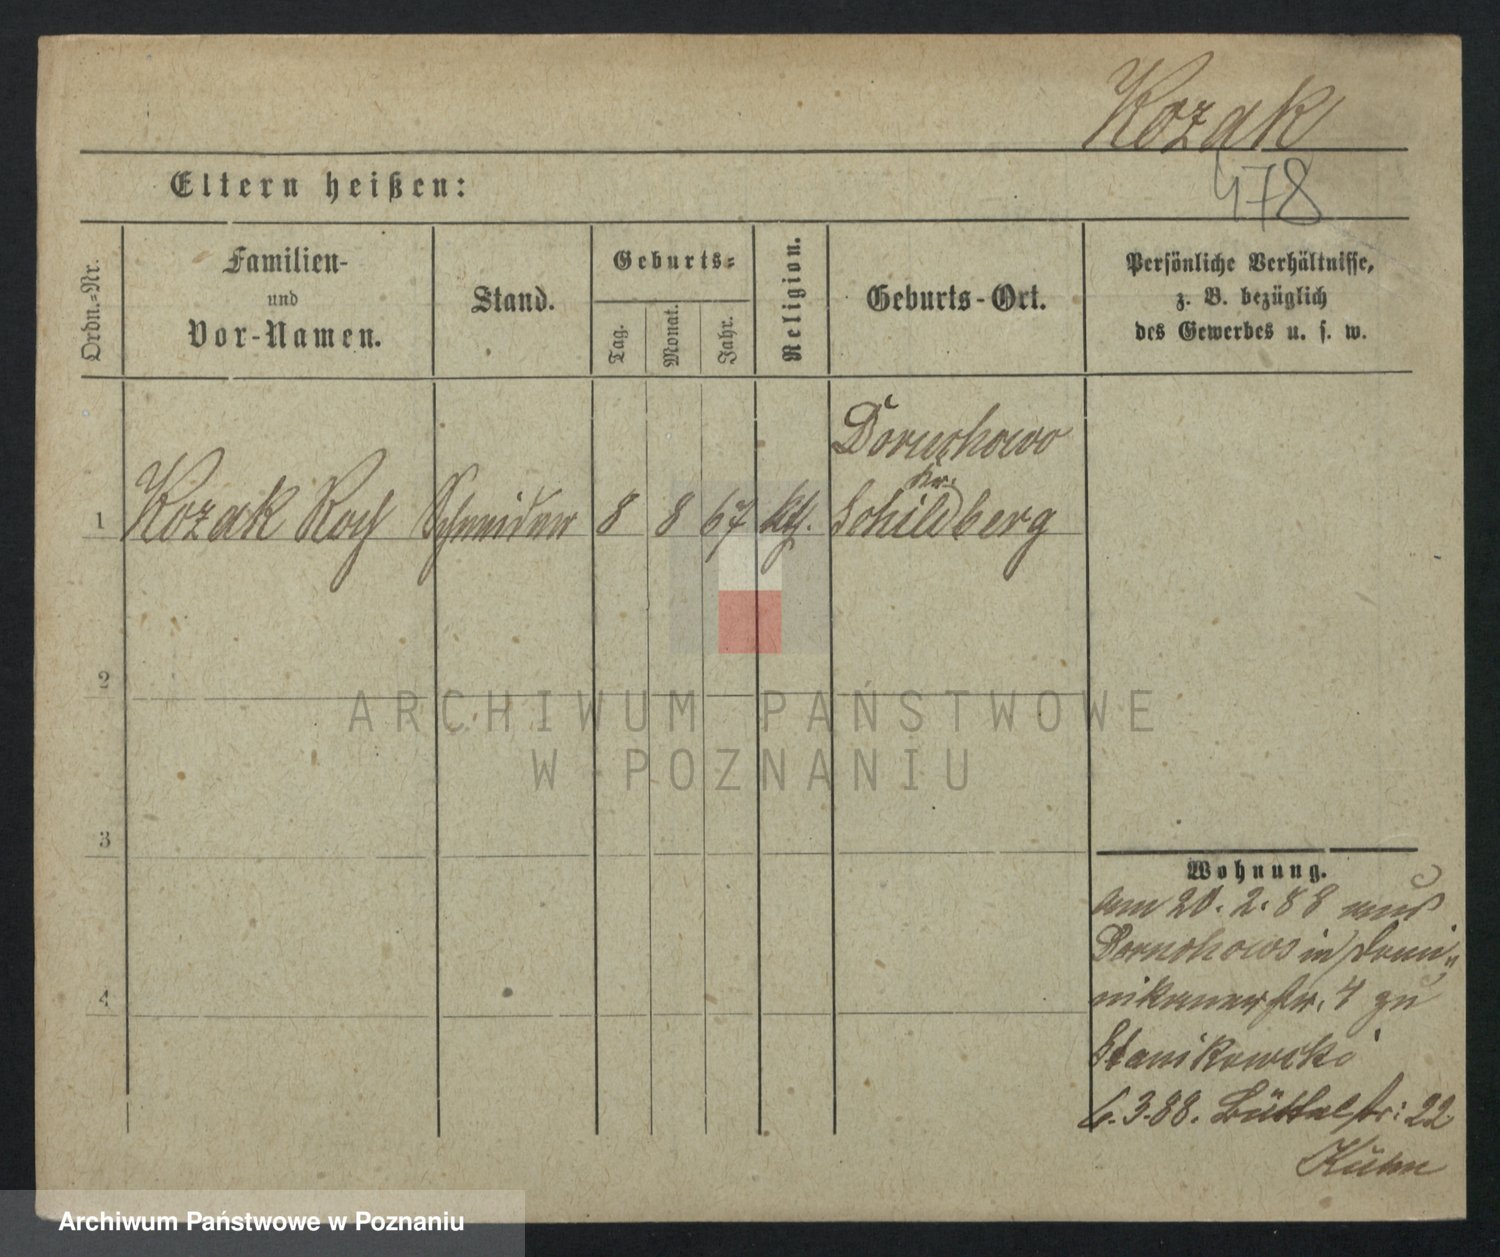 Kozak
478
Eltern heißen:
Ordn.=Nr.
Familien-
und
Vor-Namen.
Stand.
Geburts=
Tag.
Monat.
Jahr.
Religion.
Geburts-Ort.
Persönliche Verhältnisse,
z. B. bezüglich
des Gewerbes u. s. w.
1 Kozak Roch Schneider 8 8 67 kth. Doruchowo
Kr.
Schildberg
2
3
4
ARCHIWUM PAŃSTWOWE
W POZNANIU
Wohnung.
am 20. 2. 88 aus
Doruchowo in Domi„
nikanerstr. 4 zu
Stanikowski
6. 3. 88. Büttelstr: 22
Kuhn
Archiwum Państwowe w Poznaniu